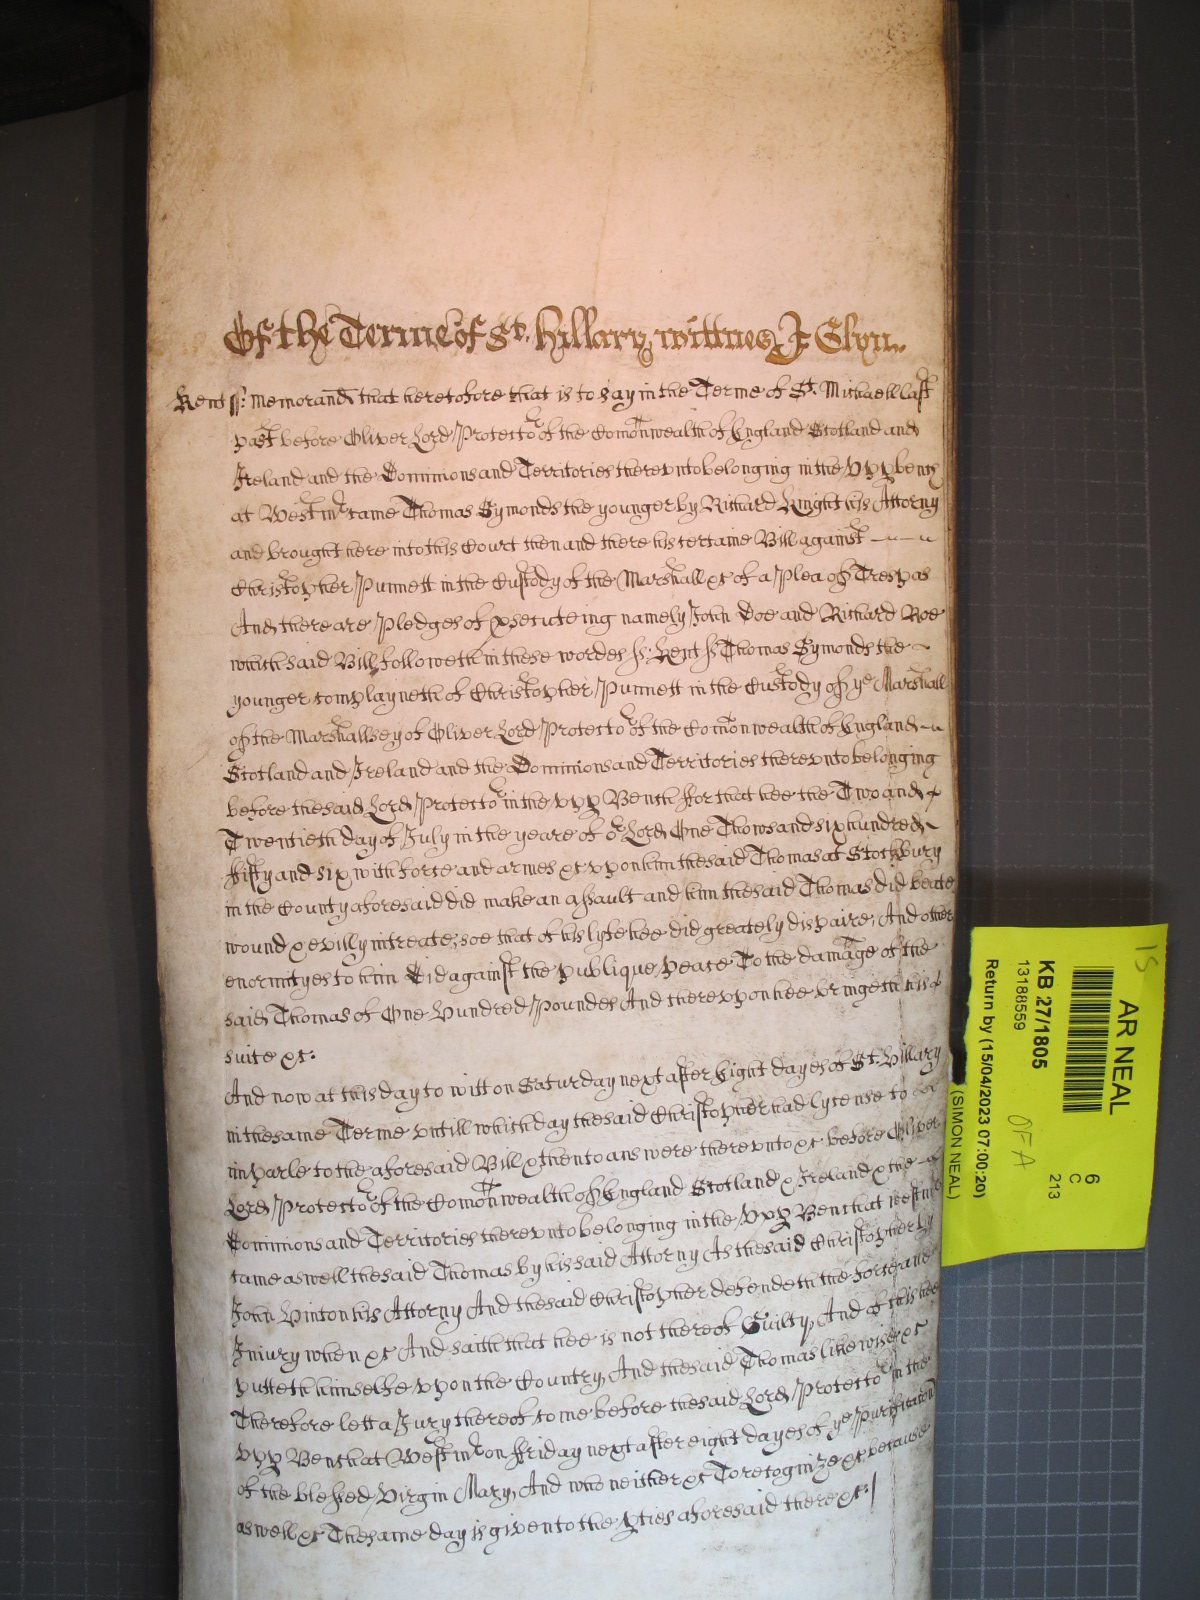 Of the Terme of St. Hillary wittnes J Glyn.
Kent ss: Memorand that heretofore that is to say in the Terme of St. Michaell last
past before Oliver Lord Protector of the Comonwealth of England Scotland and
Ireland and the Dominions and Territories therevnto belonging in the vpp bench
at Westmr came Thomas Symonds the younger by Richard Knight his Attorny
and brought here into this Court then and there his certaine Bill against
Christopher Punnett in the Custody of the Marshall &c of a Plea of Trespas
And there are Pledges of prsecuteing namely John Doe and Richard Roe
which said Bill followeth in these wordes ss: Kent ss Thomas Symonds the
younger complayneth of Christopher Punnett in the Custody of ye Marshall
of the Marshallsey of Oliver Lord Protector of the Comonwealth of England
Scotland and Ireland and the Dominions and Territories therevnto belonging
before the said Lord Protector in the vpp Bench ffor that hee the Two and
Twentieth day of July in the yeare of or Lord One Thowsand six hundred
fifty and six with force and armes &c vpon him the said Thomas at Stockbury
in the County aforesaid did make an assault and him the said Thomas did beate
wound & evilly intreate; soe that of his lyfe hee did greately dispaire; And other
enormityes to him Did against the publique peace To the damage of the
said Thomas of One Hundred Poundes And therevpon hee bringeth his
suite &c.
And now at this day to witt on Saturday next after Eight dayes of St. Hillary
in the same Terme vntill which day the said Christopher had lycense to
imparle to the aforesaid Bill & then to answere therevnto &c before Oliver
Lord Protector of the Comonwealth of England Scotland & Ireland & the
Dominions and Territories therevnto belonging in the vpp Bench at Westmr
came aswell the said Thomas by his said Attorny As the said Christopher by
John Hinton his Attorny And the said Christopher defendeth the force and
Iniury when &c And saith that hee is not thereof Guilty, And of this hee
putteth himselfe vpon the Country, And the said Thomas likewise &c
Therefore lett a Jury thereof come before the said Lord Protector in the
vpp Bench at Westmr on ffriday next after eight dayes of ye Purificacon
of the blessed Virgin Mary, And who neither &c To recognize &c because
aswell &c The same day is given to the pties aforesaid there &c.
AR NEAL
6
C
213
KB 27/1805
13188559
Return by (15/04/2023 07:00:20)
(SIMON NEAL)
OFA
15